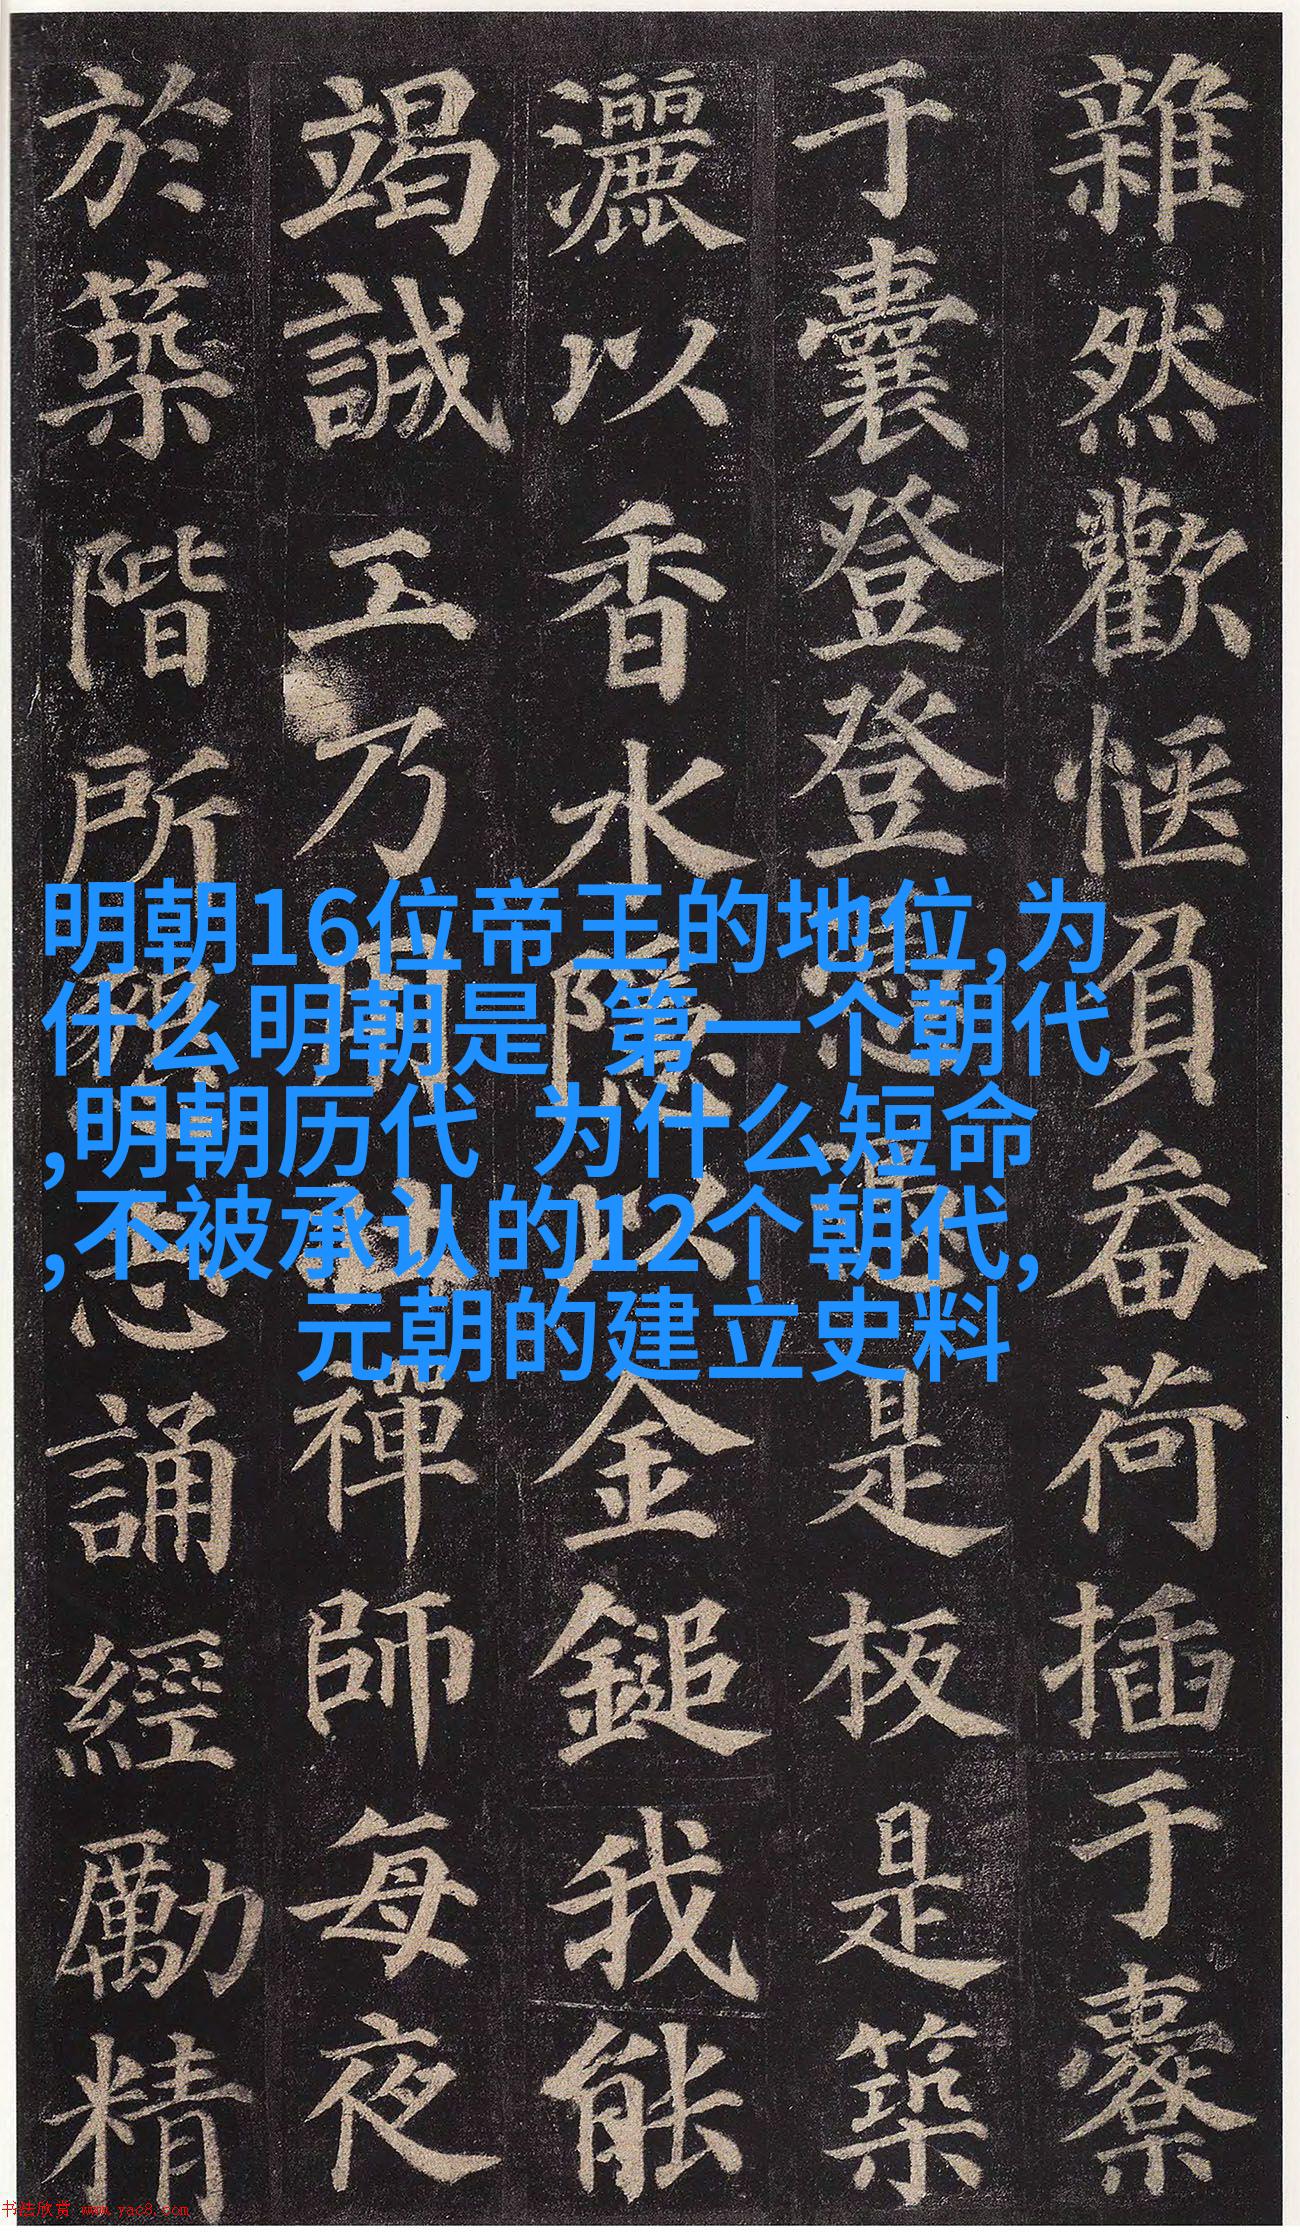 雜然歡愜負畚荷插于橐
于囊登登是板是築
灑以香水隱以金鎚我能
竭誠工乃禪師每夜
於築階所志誦經勵精
明朝16位帝王的地位,为
什么明朝是 第一个朝代
,明朝历代 为什么短命
,不被承认的12个朝代,
元朝的建立史料
书法欣赏 www.yac8.com